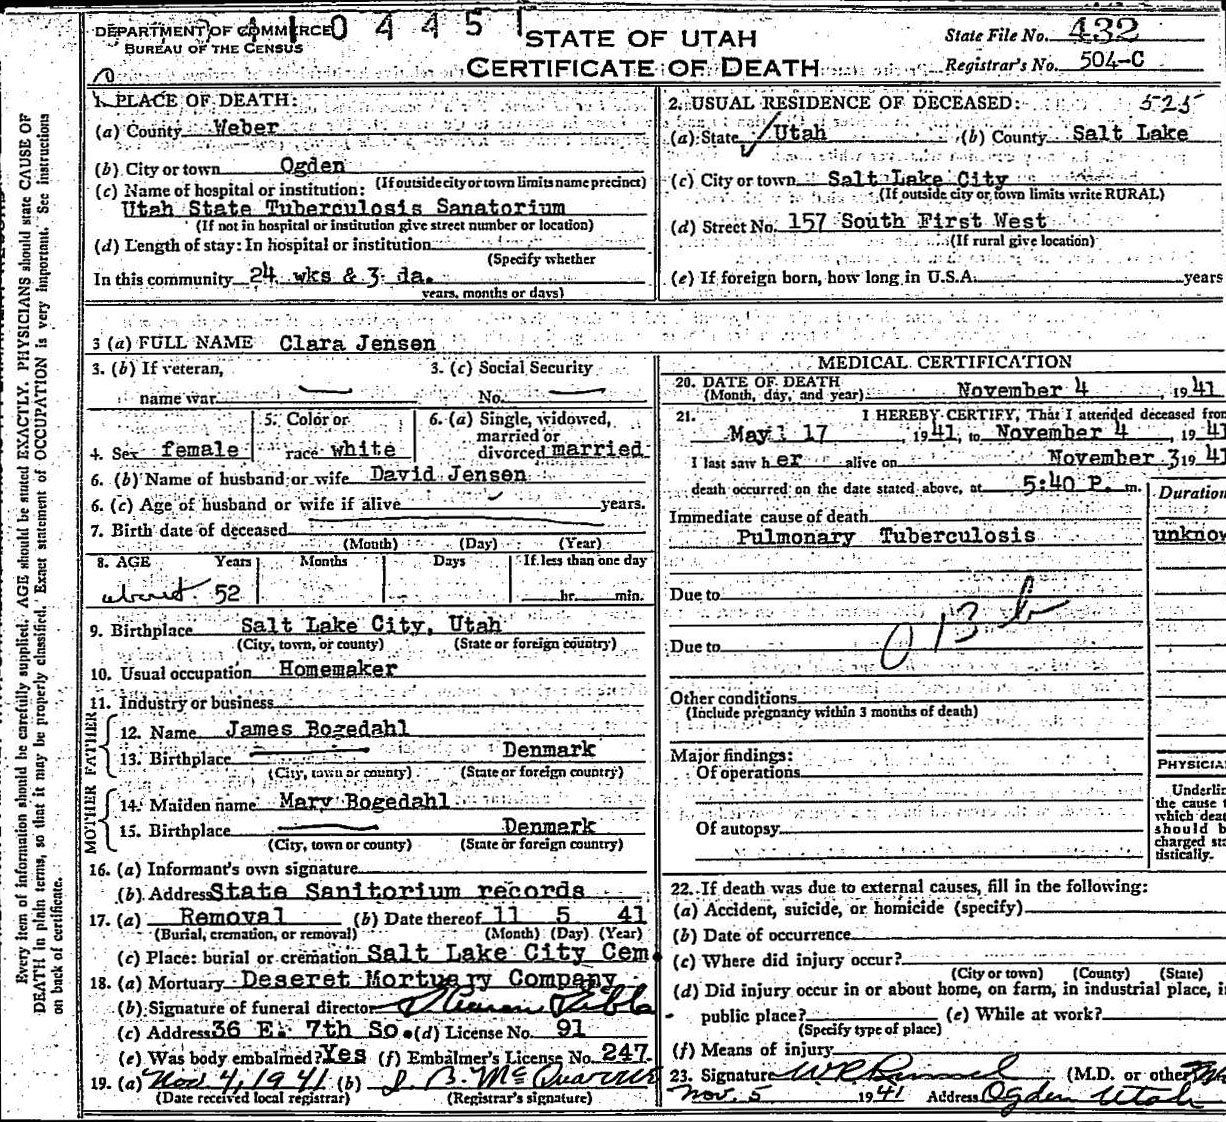 DEPARTMENT OF COMMERCE
BUREAU OF THE CENSUS
0 4 4 5
STATE OF UTAH
CERTIFICATE OF DEATH
State File No. 432
Registrar's No. 504-C
1. PLACE OF DEATH:
(a) County Weber
(b) City or town Ogden
(If outside city or town limits name precinct)
(c) Name of hospital or institution:
Utah State Tuberculosis Sanatorium
(If not in hospital or institution give street number or location)
(d) Length of stay: In hospital or institution
(Specify whether
In this community 24 wks & 3 da.
years, months or days)
2. USUAL RESIDENCE OF DECEASED: 525
(a) State Utah (b) County Salt Lake
(c) City or town Salt Lake City
(If outside city or town limits write RURAL)
(d) Street No. 157 South First West
(If rural give location)
(e) If foreign born, how long in U.S.A. years
3 (a) FULL NAME Clara Jensen
3. (b) If veteran,
name war
3. (c) Social Security
No.
4. Sex female
5. Color or
race white
6. (a) Single, widowed,
married or
divorced married
6. (b) Name of husband or wife David Jensen
6. (c) Age of husband or wife if alive years.
7. Birth date of deceased
(Month) (Day) (Year)
8. AGE Years Months Days If less than one day
about 52 hr. min.
9. Birthplace Salt Lake City, Utah
(City, town, or county) (State or foreign country)
10. Usual occupation Homemaker
11. Industry or business
FATHER
12. Name James Bogedahl
13. Birthplace Denmark
(City, town or county) (State or foreign country)
MOTHER
14. Maiden name Mary Bogedahl
15. Birthplace Denmark
(City, town or county) (State or foreign country)
16. (a) Informant's own signature
(b) Address State Sanitorium records
17. (a) Removal (b) Date thereof 11 5 41
(Burial, cremation, or removal) (Month) (Day) (Year)
(c) Place: burial or cremation Salt Lake City Cem.
18. (a) Mortuary Deseret Mortuary Company
(b) Signature of funeral director
(c) Address 36 E. 7th So. (d) License No. 91
(e) Was body embalmed? Yes (f) Embalmer's License No. 247
19. (a) Nov 4, 1941 (b) J. B. McQuarrie
(Date received local registrar) (Registrar's signature)
MEDICAL CERTIFICATION
20. DATE OF DEATH
(Month, day, and year) November 4, 1941
21. I HEREBY CERTIFY, That I attended deceased from
May 17, 1941, to November 4, 1941
I last saw her alive on November 3 1941
death occurred on the date stated above, at 5:40 P. m.
Duration
Immediate cause of death
Pulmonary Tuberculosis unknow
Due to
013 b
Due to
Other conditions
(Include pregnancy within 3 months of death)
Major findings:
Of operations
Of autopsy
PHYSICIA
Underlin
the cause t
which deat
should b
charged sta
tistically.
22. If death was due to external causes, fill in the following:
(a) Accident, suicide, or homicide (specify)
(b) Date of occurrence
(c) Where did injury occur?
(City or town) (County) (State)
(d) Did injury occur in or about home, on farm, in industrial place, in
public place? (e) While at work?
(Specify type of place)
(f) Means of injury
23. Signature (M.D. or other)
Nov. 5 1941 Address Ogden Utah
Every item of information should be carefully supplied. AGE should be stated EXACTLY. PHYSICIANS should state CAUSE OF
DEATH in plain terms, so that it may be properly classified. Exact statement of OCCUPATION is very important. See instructions
on back of certificate.